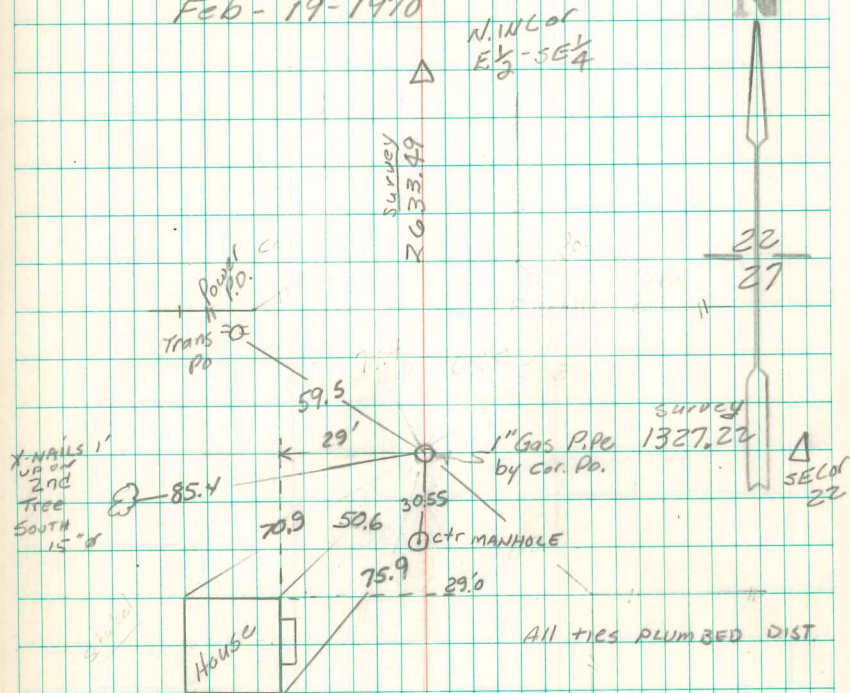 Feb - 19-1970
N
N.W Cor
E½ - SE¼
Survey
2633.49
22
27
Power
P.O.
Trans
Po
59.5
29'
1" Gas Pipe
by cor. Po.
survey
1327.22
SE Cor
22
X-NAILS 1'
UP ON
2nd
Tree
SOUTH
15"ø
85.4
30.55
70.9
50.6
ctr MANHOLE
75.9
29.0
House
All ties PLUMBED DIST.